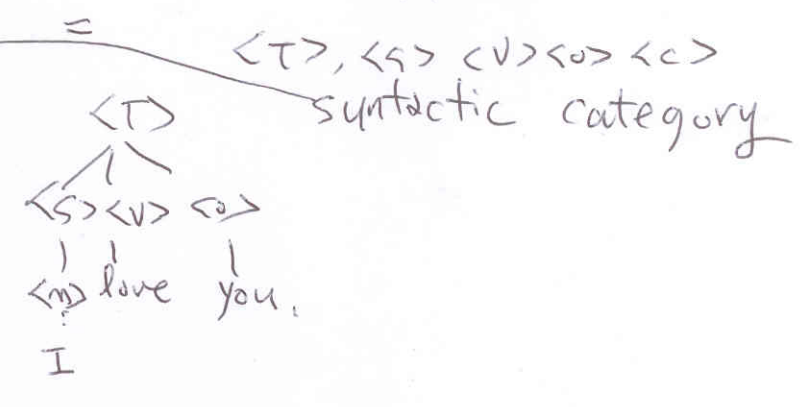 =
<T>, <S> <V> <O> <C>
syntactic category
<T>
<S> <V> <O>
<n> love you.
I